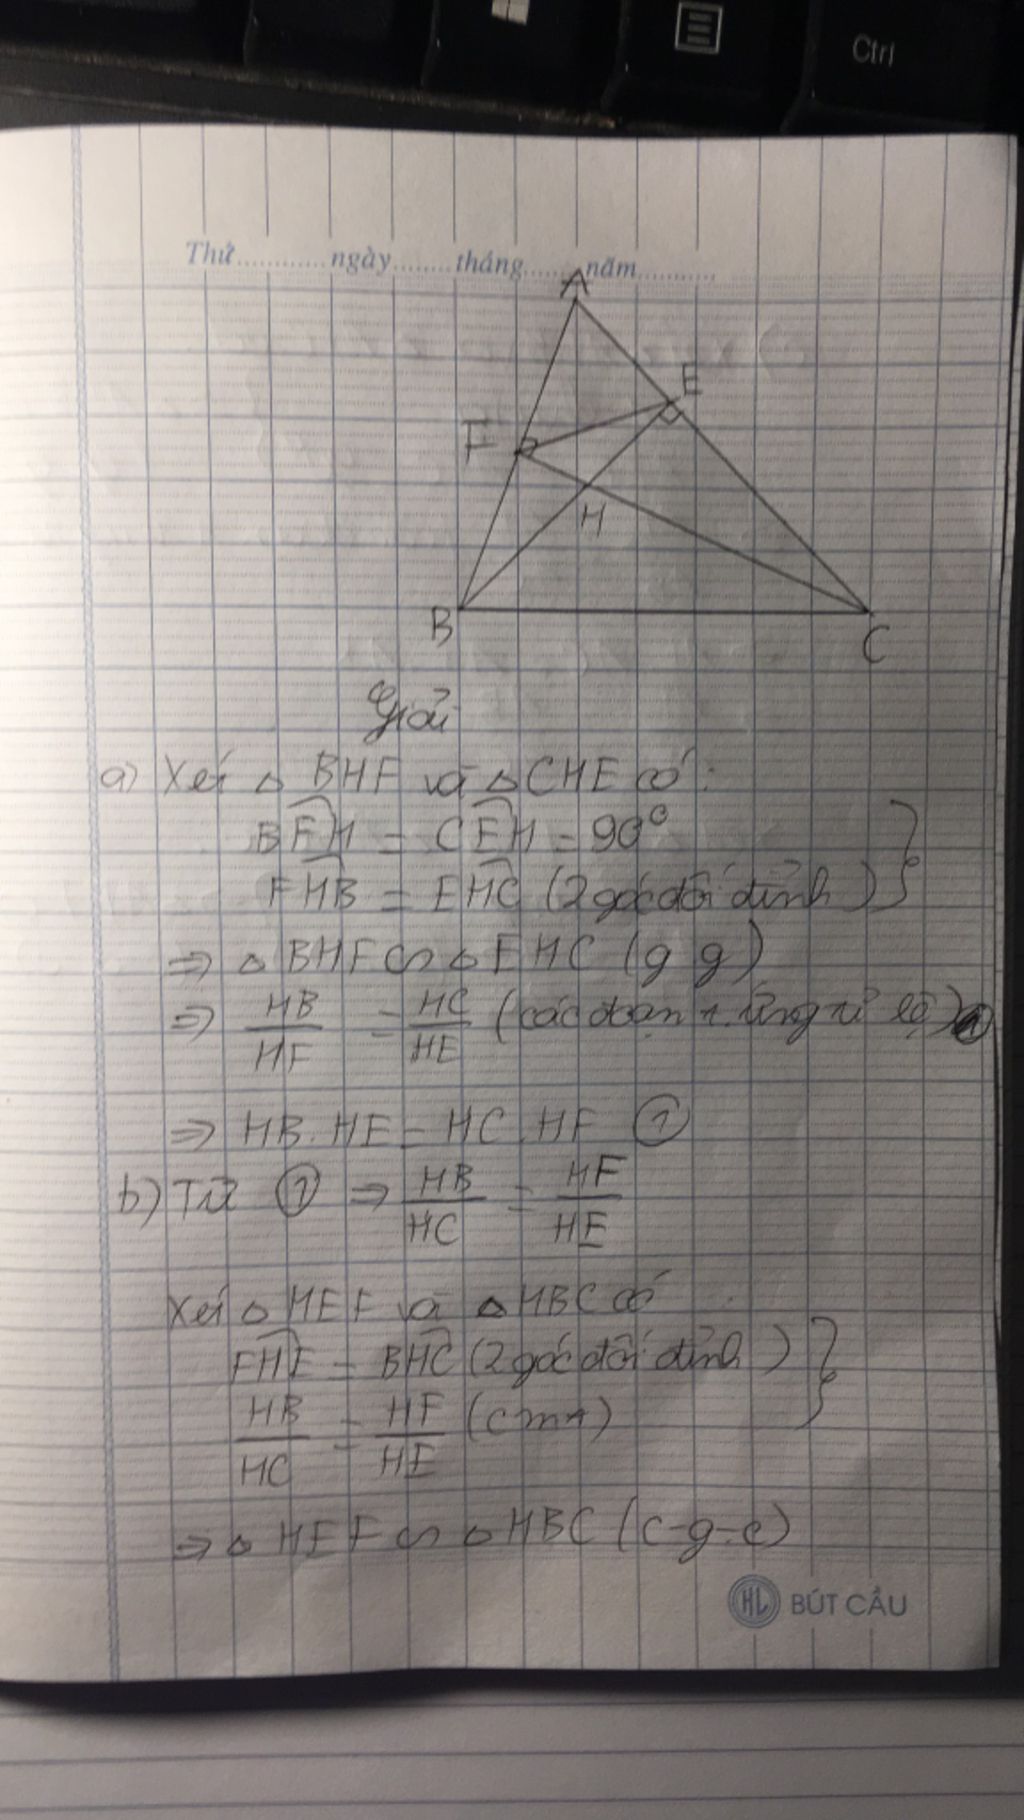 Ctrl
Thứ............ngày........tháng........năm...........
A
E
F
H
B
C
Giải
a) Xét △ BHF và △ CHE có :
BFH = CEH = 90°
FHB = EHC (2 góc đối đỉnh)
⇒ △ BHF ∽ △ EHC (g g)
⇒ HB/HF = HC/HE (các đoạn t.ứng tỉ lệ)
⇒ HB.HE = HC.HF ①
b) Từ ① ⇒ HB/HC = HF/HE
Xét △ HEF và △ HBC có
FHE = BHC (2 góc đối đỉnh)
HB/HC = HF/HE (cmt)
⇒ △ HEF ∽ △ HBC (c-g-c)
HL BÚT CẦU